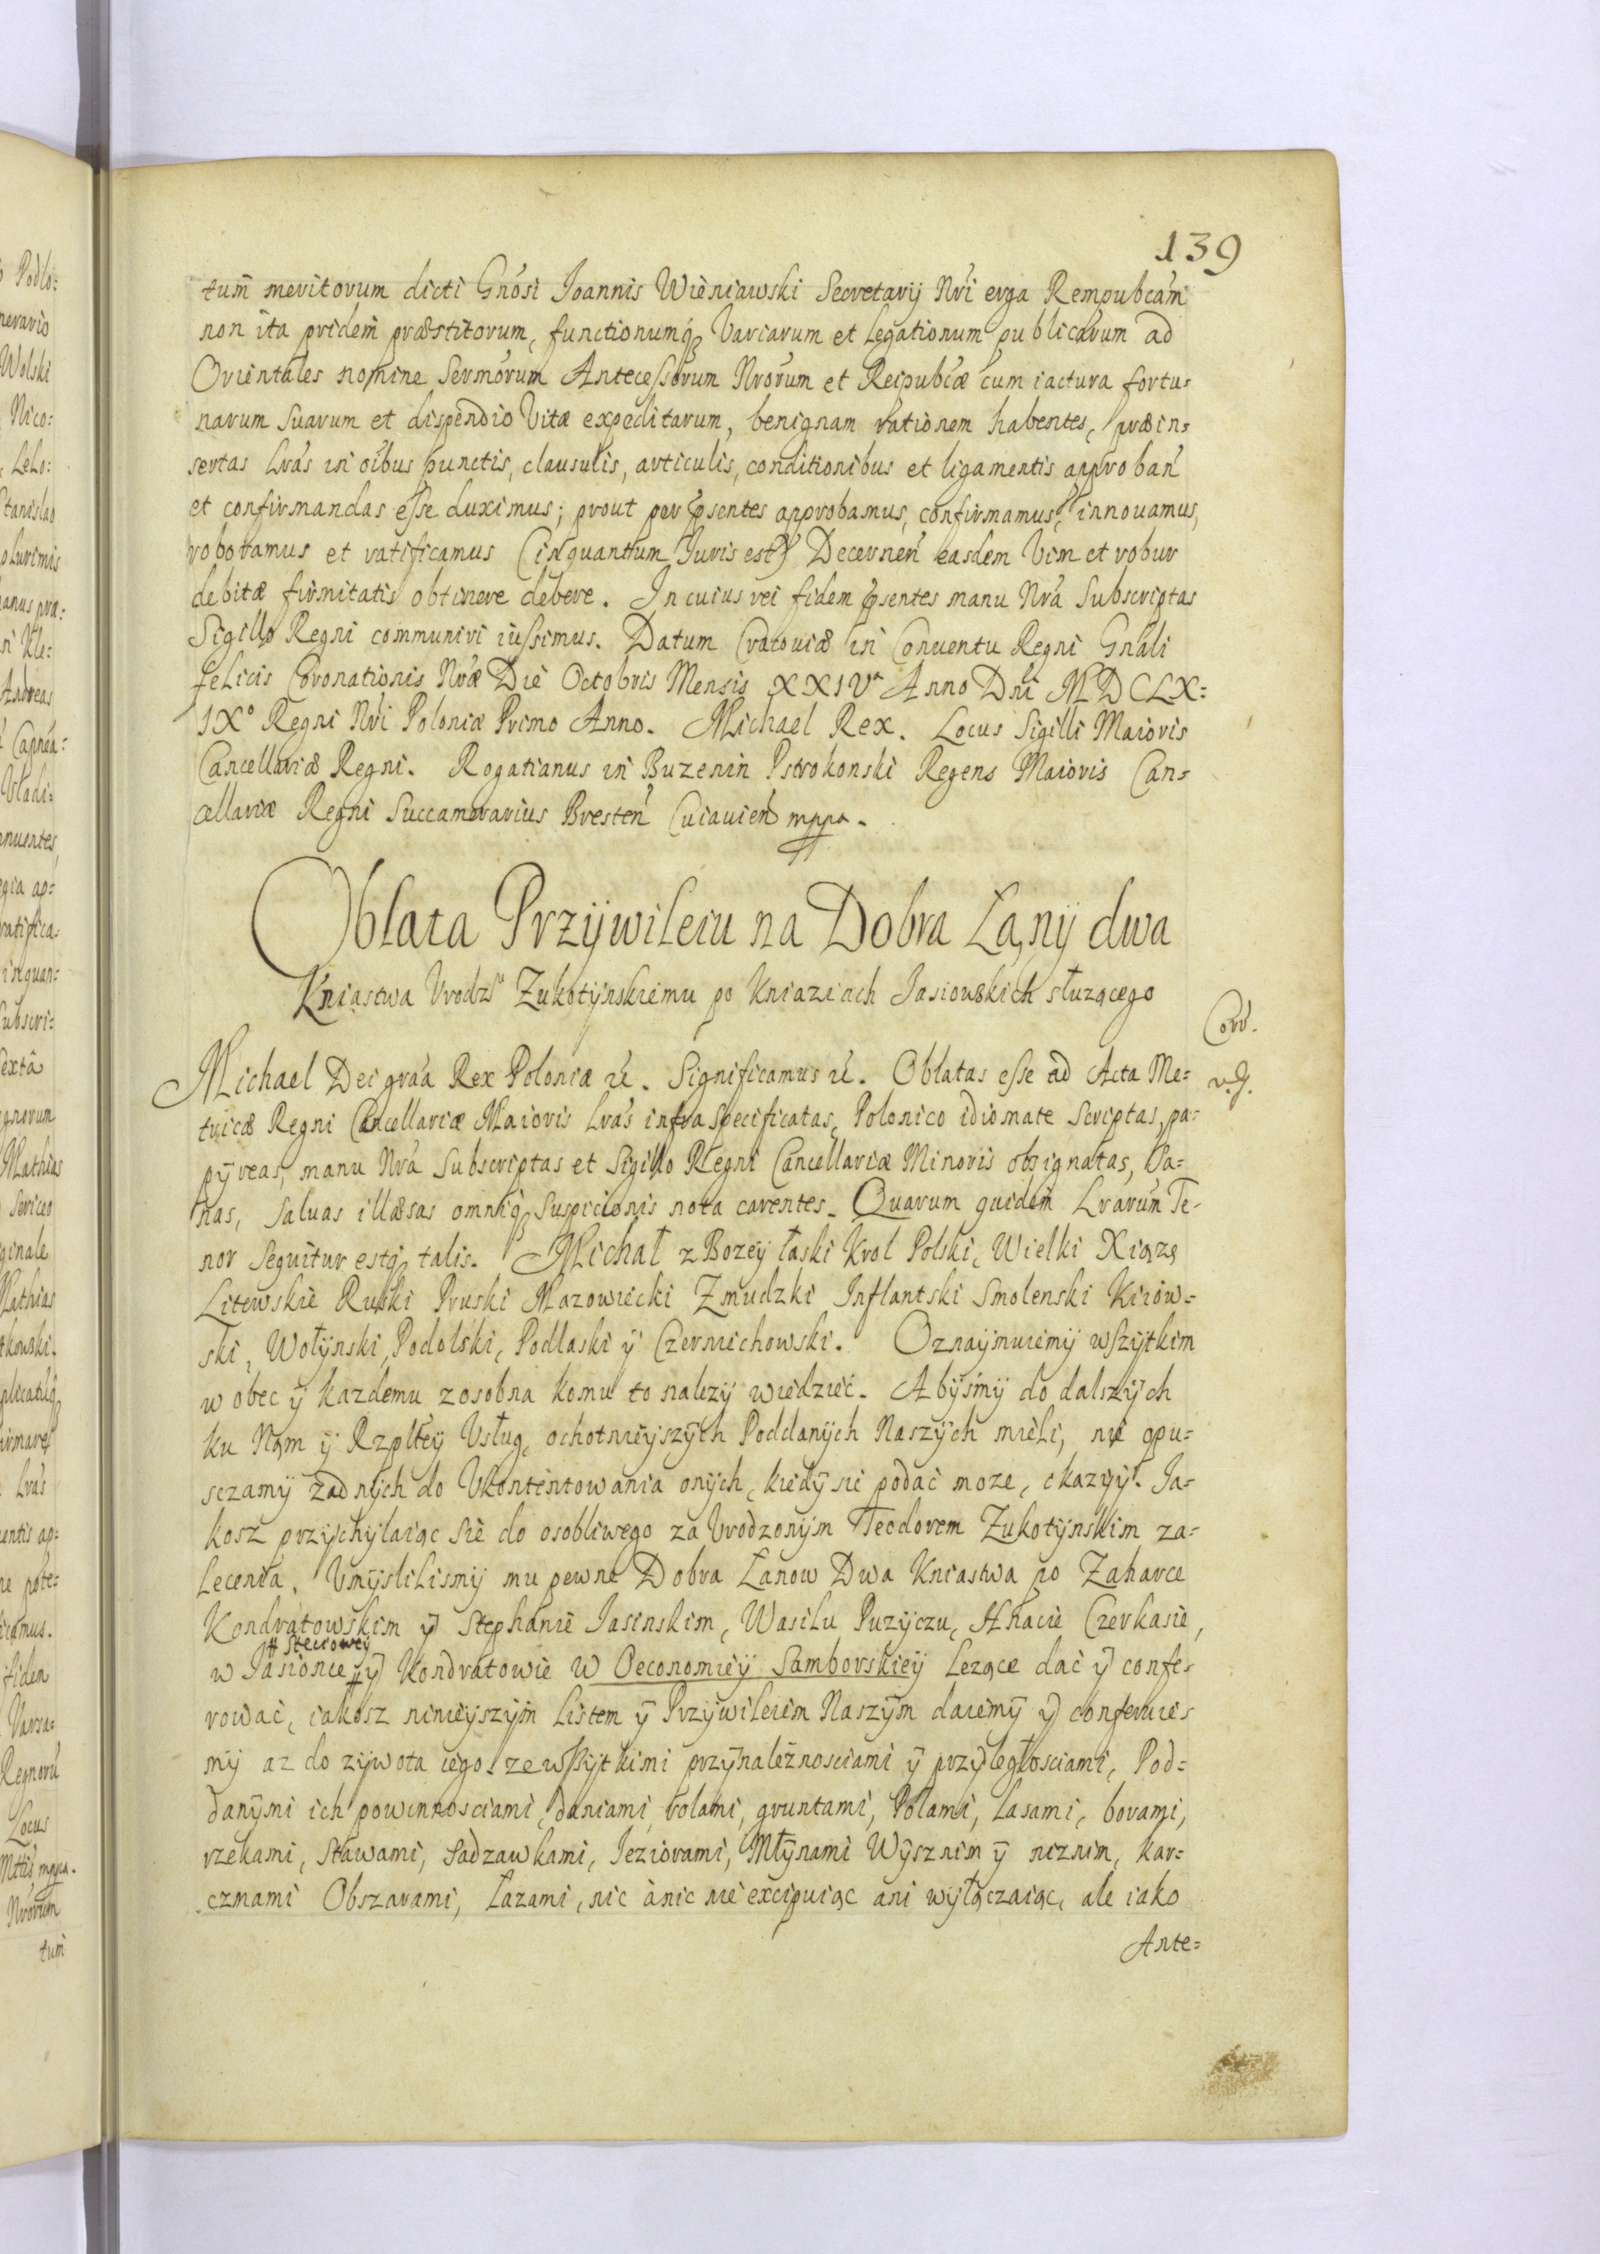 139
tum̃ meritorum dicti Gnósi Joannis Wieniawski Secretarij Nri erga Rempubcam
non ita pridem præstitorum, functionumq́ Variarum et Legationum publicarum ad
Orientales nomine Sermorum Antecessorum Nrorum et Reipubcæ cum iactura fortu=
narum suarum et dispendio Vitæ expeditarum, benignam rationem habentes, præin=
sertas Lrás in oibus punctis, clausulis, articulis, conditionibus et ligamentis approban
et confirmandas esse duximus; prout per psentes approbamus, confirmamus, innouamus,
roboramus et ratificamus (inquantum Juris est) Decernen easdem Vim et robur
debitæ firmitatis obtinere debere. In cuius rei fidem psentes manu Nrá Subscriptas
Sigillo Regni communiri iussimus. Datum Cracoviæ in Conuentu Regni Gnáli
felicis Coronationis Nræ Die Octobris Mensis XXIVᵃ Anno Dni MDCLX=
IXº Regni Nri Poloniæ Primo Anno. Michael Rex. Locus Sigilli Maioris
Cancellariæ Regni. Rogatianus in Buzenin Pstrokonski Regens Maioris Can=
cellariæ Regni Succamerarius Bresten Cuiauien mppa.
Oblata Przÿwileiu na Dobra Łanÿ dwa
Kniastwa Vrodzᵘ Zukotÿnskiemu po Kniaziach Jasiowskich służącego
Corr.
Michael Dei grá́a Rex Poloniæ ꝛc. Significamus ꝛc. Oblatas esse ad Acta Me=
v. J.
tricæ Regni Cancellariæ Maioris Lrás infra specificatas, Polonico idiomate scriptas, pa=
pÿreas, manu Nrá Subscriptas et Sigillo Regni Cancellariæ Minoris obsignatas, Sa=
nas, Saluas illæsas omniq́ suspicionis nota carentes. Quarum quidem Lrarum Te=
nor sequitur estq́ talis. Michał z Bozeÿ łaski Krol Polski, Wielki Xiąze
Litewskie Ruski Pruski Mazowiecki Zmudzki Inflantski Smolenski Kiiow=
ski, Wołÿnski, Podolski, Podlaski ÿ Czerniechowski. Oznaÿmuiemÿ wszÿtkim
w obec ÿ kazdemu zosobna komu to nalezÿ wiedziec. Abÿsmÿ do dalszÿch
ku Nam ÿ Rzpltey Vsług, ochotnieyszÿch Poddanÿch Naszÿch mieli, nie opu=
sczamÿ zadnÿch do Vkontentowania onÿch, kiedÿ sie podac moze, okazyÿ. Ja=
kosz przÿchÿlaiąc sie do osobliwego za Vrodzonÿm Teodorem Zukotÿnskim za=
lecenia. Vmÿslilismÿ mu pewne Dobra Łanow Dwa Kniastwa po Zaharce
Kondratowskim ÿ Stephanie Jasinskim, Wasilu Puzÿczu, Hnacie Czerkasie,
# Steciowey
w Jasionce # ÿ Kondratowie w Oeconomiey Samborskieÿ Lezące dac ÿ confe=
rowac, iakosz ninieyszÿm Listem ÿ Przÿwileiem Naszÿm daiemÿ ÿ conferuie=
mÿ az do zÿwota iego ze wszÿtkimi przÿnaleznosciami ÿ przÿległosciami, Pod=
danÿmi ich powinnosciami, daniami, rolami, gruntami, Polami, Lasami, borami,
rzekami, stawami, sadzawkami, Jeziorami, Młÿnami Wÿsznim ÿ niznim, kar=
czmami Obszarami, Łazami, nic a nic nie excipuiąc ani wÿłączaiąc, ale iako
Ante=